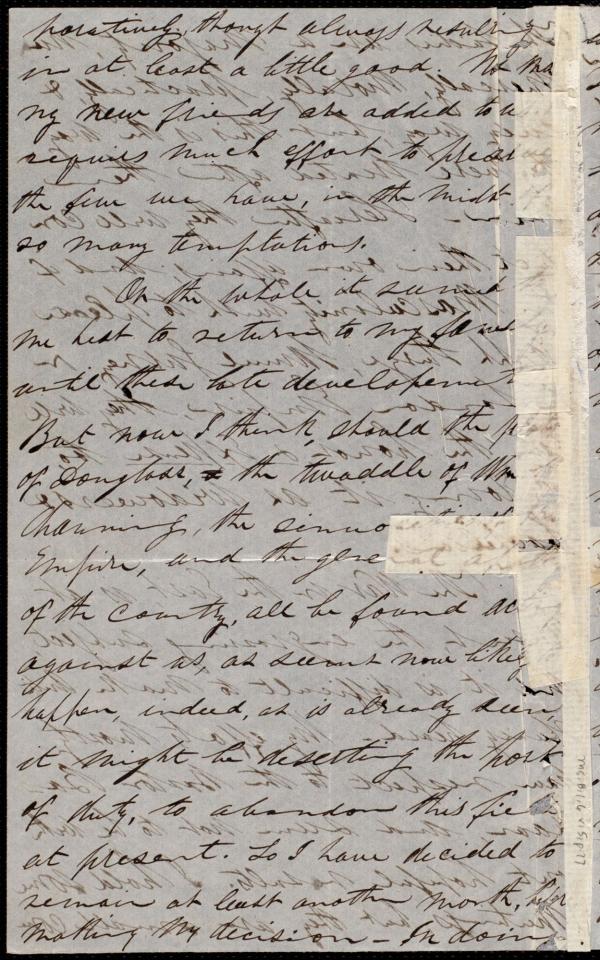 poratively, though always resulting
in at least a little good. No ma
ny new friends are added to us
requires much effort to preser
the few we have, in the midst
so many temptations.
On the whole it seemed
me best to return to my
until these late developement
But now I think, should the p
of Douglass, the twaddle of Wm
Channing, the
Empire, and the gene
of the country, all be found
against us, as seems now likely
happen, indeed, as is already seen,
it might be deserting the post
of duty, to abandon this fie
at present. So I have decided to
remain at least another month, before
making my decision - In doin